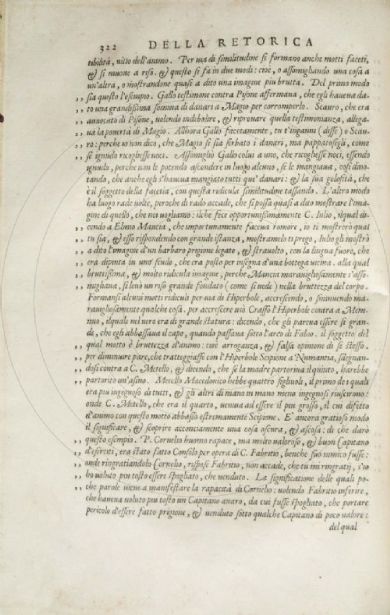 322 DELLA RETORICA
tibidità, uitio dell'animo. Per uia di similitudine si formano anche motti faceti,
& si muoue a riso. & questo si fa in due modi: cioè, o assomigliando una cosa a
un'altra, o mostrandone quasi a dito una imagine piu brutta. Del primo modo
sia questo l'essempio. Gallo testimone contra Pisone affermaua, che egli haueua dato
una grandissima somma di danari a Magio per corromperlo. Scauro, che era
auuocato di Pisone, uolendo indebolire, & riprouare quella testimonianza, allegaua
la pouertà di Magio. Allhora Gallo facetamente, tu t'inganni (disse) o Scauro:
perche io non dico, che Magio si sia serbato i danari, ma
se ignudo ricogliesse noci. Assomigliò Gallo colui a uno, che ricogliesse noci, essendo
ignudo, perche non le potendo ascondere in luogo alcuno, se le mangiaua, così dinotando,
che anche egli s'haueua mangiato tutti que' danari: & la sua golosità, che
è il soggetto della facetia, con questa ridicula similitudine tassando. L'altro modo
ha luogo rade uolte, perche di rado accade, che si possa quasi a dito mostrare l'imagine
di quello, che noi uogliamo: ilche fece opportunissimamente C. Iulio, ilqual dicendo
a Elmo Mancia, che importunamente faceua romore, io ti mostrerò qual
tu sia, & esso rispondendo con grande istanza, mostramelo ti prego, Iulio gli mostrò
a dito l'imagine d'un barbaro prigione legato, & strauolto, con la lingua fuore, che
era dipinta in uno scudo, che era posto per insegna d'una bottega uicina. alla qual
bruttissima, & molto ridicula imagine, perche Mancia marauigliosamente s'assomigliaua,
si leuò un riso grande fondato (come si uede) nella bruttezza del corpo.
Formansi alcuni motti ridiculi per uia di Hiperbole, accrescendo, o sminuendo marauigliosamente
qualche cosa. per accrescere usò Crasso l'Hiperbole contra a Memmio,
ilquale nel uero era di grande statura: dicendo, che gli pareua essere si grande,
che egli abbassaua il capo, quando passaua sotto l'arco di Fabio. il soggetto del
qual motto è bruttezza d'animo: cioè arroganza, & falsa opinione di se stesso.
per diminuire pare, che tratteggiasse con l'Hiperbole Scipione a Numantia, sdegnandosi
contra a C. Metello, & dicendo, che se la madre partoriua il quinto, harebbe
partorito un'asino. Metello Macedonico hebbe quattro figliuoli, il primo de i quali
era piu ingenioso di tutti, & gli altri di mano in mano meno ingegnosi riuscirono:
onde C. Metello, che era il quarto, ueniua ad essere il piu grosso. il cui difetto
d'animo con questo motto abbassò estremamente Scipione. E' ancora gratioso modo
il significare, & scoprire accenciamente una cosa oscura, & ascosa: di che darò
questo essempio. P. Cornelio huomo rapace, ma molto ualoroso, & buon Capitano
d'esserciti, era stato fatto Consolo per opera di C. Fabritio, benche suo nimico fusse:
onde ringratiandolo Cornelio, rispose Fabritio, non accade, che tu mi ringratij, s'io
ho uoluto piu tosto essere spogliato, che uenduto. La significatione delle quali poche
parole uiene a manifestare la rapacità di Cornelio: uolendo Fabritio inferire,
che haueua uoluto piu tosto un Capitano auaro, da cui fusse spogliato, che portare
pericolo d'essere fatto prigione, & uenduto sotto qualche Capitano di poco ualore:
del qual